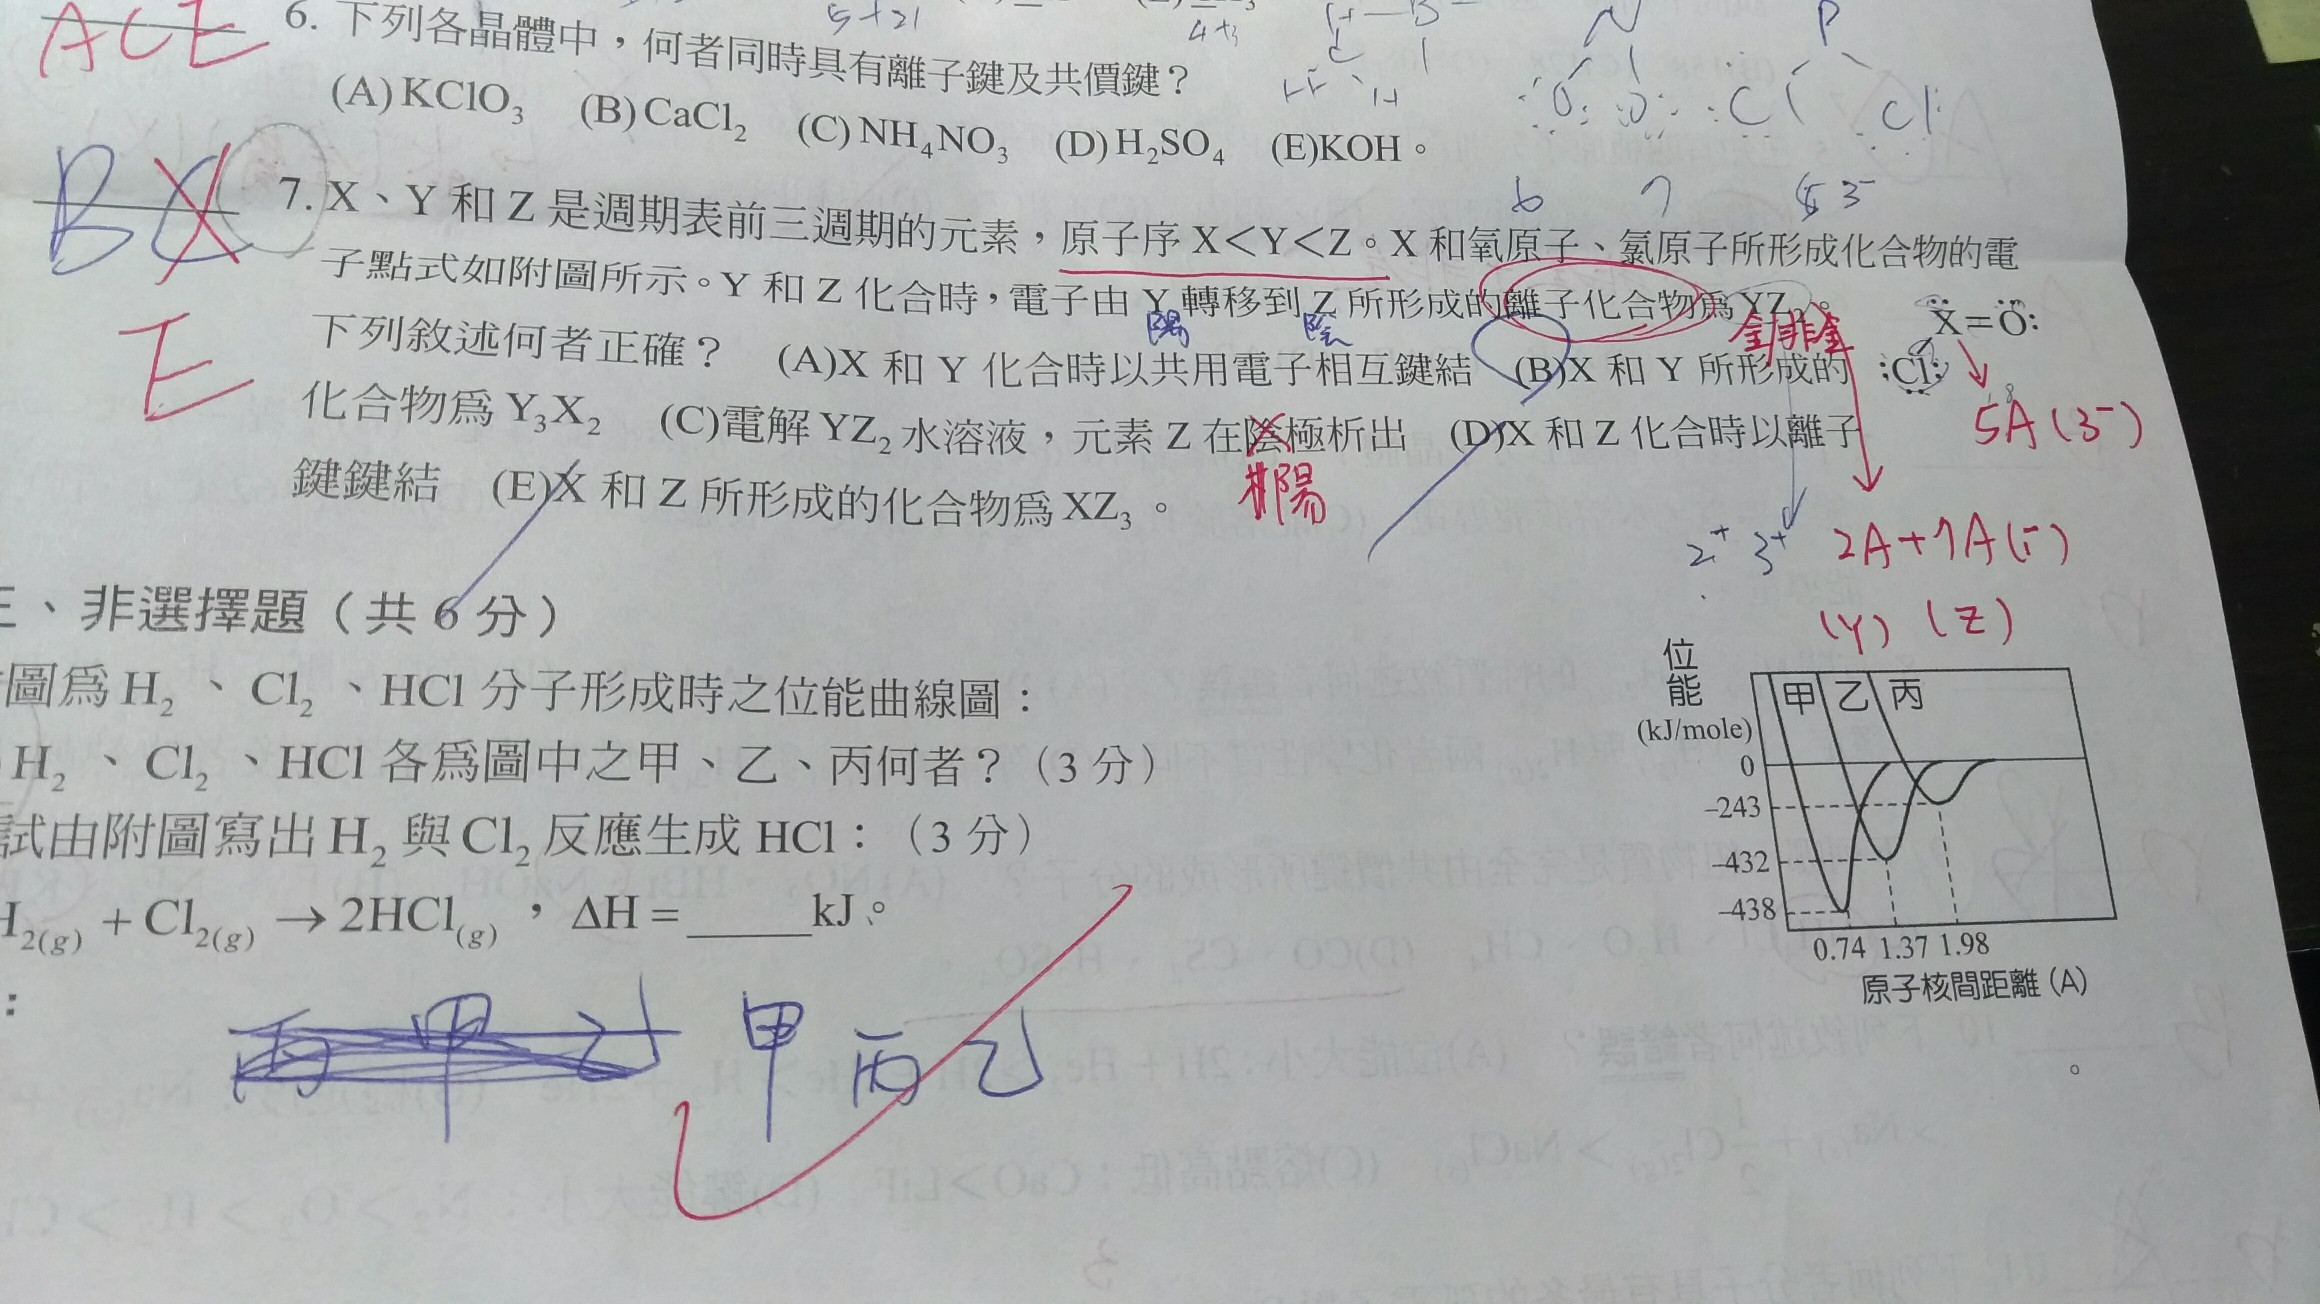 ACE 6. 下列各晶體中，何者同時具有離子鍵及共價鍵？
5+21
4+3
(A) KClO₃ (B) CaCl₂ (C) NH₄NO₃ (D) H₂SO₄ (E)KOH。
BC 7. X、Y 和 Z 是週期表前三週期的元素，原子序 X＜Y＜Z。X 和氧原子、氯原子所形成化合物的電
子點式如附圖所示。Y 和 Z 化合時，電子由 Y 轉移到 Z 所形成的離子化合物為 YZ₂。
陽 陰 金 非金
E 下列敘述何者正確？ (A)X 和 Y 化合時以共用電子相互鍵結 (B)X 和 Y 所形成的
化合物為 Y₃X₂ (C)電解 YZ₂ 水溶液，元素 Z 在陰極析出 (D)X 和 Z 化合時以離子
鍵鍵結 (E)X 和 Z 所形成的化合物為 XZ₃。
陽
X=O
Cl
5A (3⁻)
2⁺ 3⁺ 2A+7A(1⁻)
(Y) (Z)
三、非選擇題（共 6 分）
圖為 H₂、Cl₂、HCl 分子形成時之位能曲線圖：
H₂、Cl₂、HCl 各為圖中之甲、乙、丙何者？（3 分）
試由附圖寫出 H₂ 與 Cl₂ 反應生成 HCl：（3 分）
H₂(g) + Cl₂(g) → 2HCl(g)，ΔH = _____ kJ。
位能
(kJ/mole)
甲 乙 丙
0
−243
−432
−438
0.74 1.37 1.98
原子核間距離 (A)
：
丙 甲 乙 甲 丙 乙